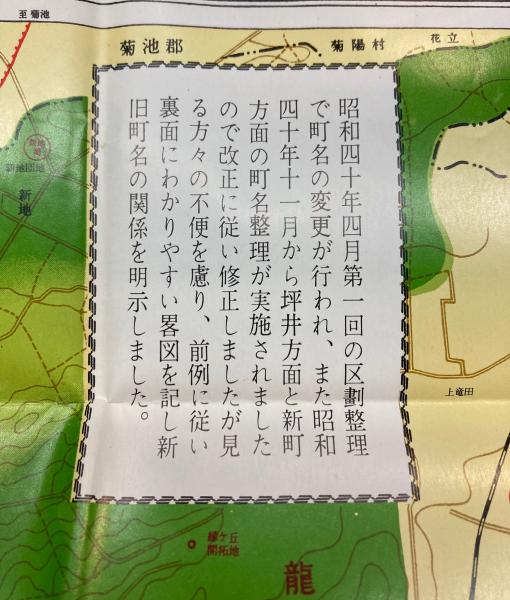 至菊池
菊池郡
菊陽村
花立
昭和四十年四月第一回の区劃整理
で町名の変更が行われ、また昭和
四十年十一月から坪井方面と新町
方面の町名整理が実施されました
ので改正に従い修正しましたが見
る方々の不便を慮り、前例に従い
裏面にわかりやすい畧図を記し新
旧町名の関係を明示しました。
新地団地
新地
上竜田
緑ケ丘
開拓地
龍